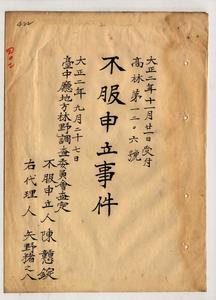 大正二年十一月廿一日受付
高林第一二〇六號
不服申立事件
大正二年九月二十七日
臺中廳地方林野調査委員會査定
不服申立人 陳懸錠
右代理人 矢野猪之八